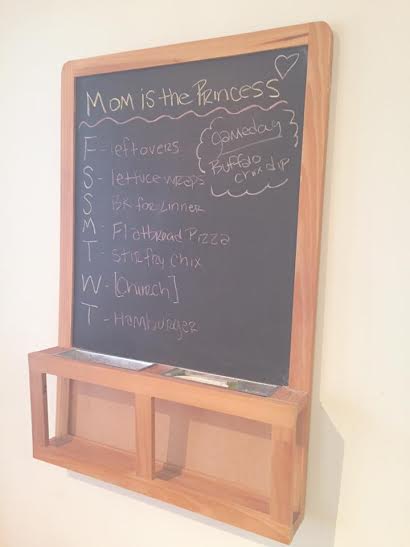 Mom is the Princess
Gameday
Buffalo
chix dip
F - leftovers
S - lettuce wraps
S - BK for Linner
M - Flatbread Pizza
T - stir fry chix
W - [Church]
T - Hamburger